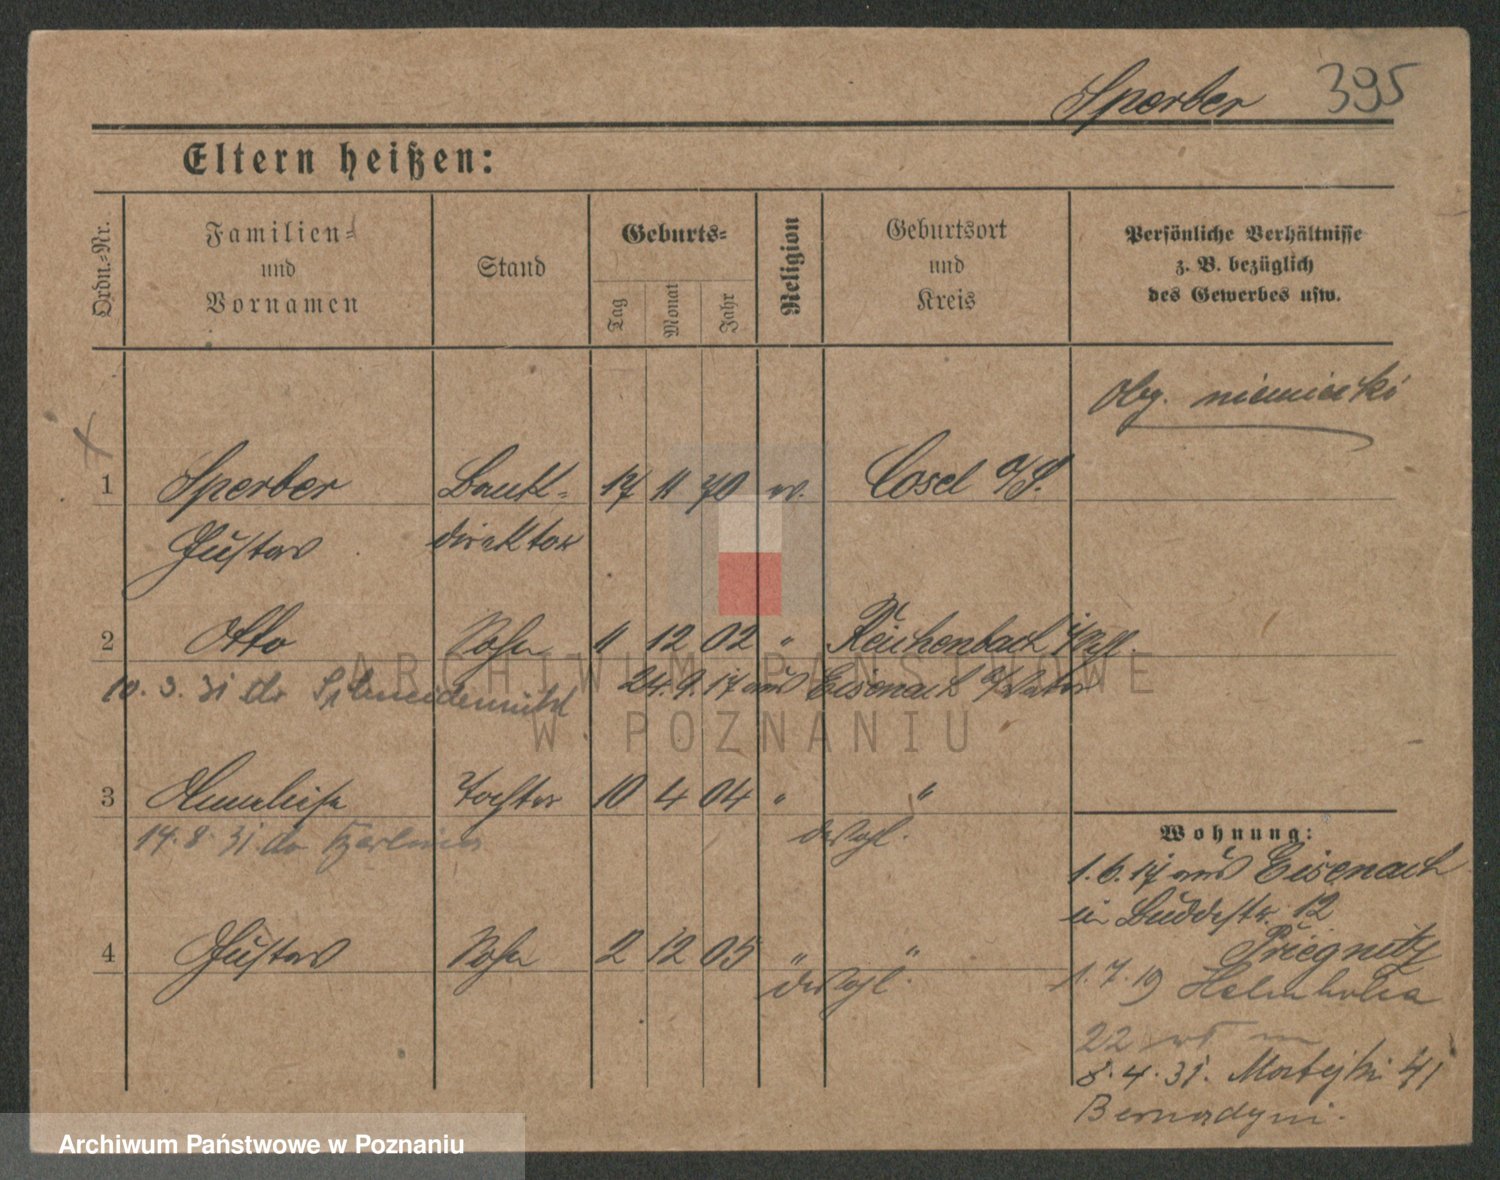 Sperber 395
Eltern heißen:
Ordn.-Nr.
Familien- und Vornamen
Stand
Geburts-
Tag
Monat
Jahr
Religion
Geburtsort und Kreis
Persönliche Verhältnisse
z. B. bezüglich
des Gewerbes usw.
Oby. niemiecki
1 Sperber Bank- 17 11 70 ev. Cosel O/S.
Gustav direktor
2 Otto Sohn 11 12 02 " Reichenbach i/Schl.
10. 3. 31 do Schneidemühl 24.9.17 aus Eisenach
3 Anneliese Tochter 10 4 04 " "
14. 8. 31 do Berlina desgl.
Wohnung:
1.6.17 aus Eisenach
in Buddestr. 12
Priegnitz
4 Gustav Sohn 2 12 05 " "
desgl.
1.7.19 Helmholza
22
8.4.31. Matejki 41
Bernardyni.
ARCHIWUM PAŃSTWOWE
W POZNANIU
Archiwum Państwowe w Poznaniu